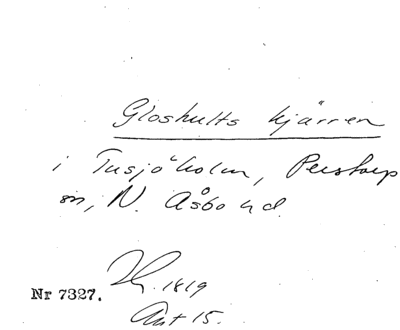 Gloshults kjärren
i Tusjöholm, Perstorp
sn, N. Åsbo hd.
1819
Nr 7327.
Akt 15.